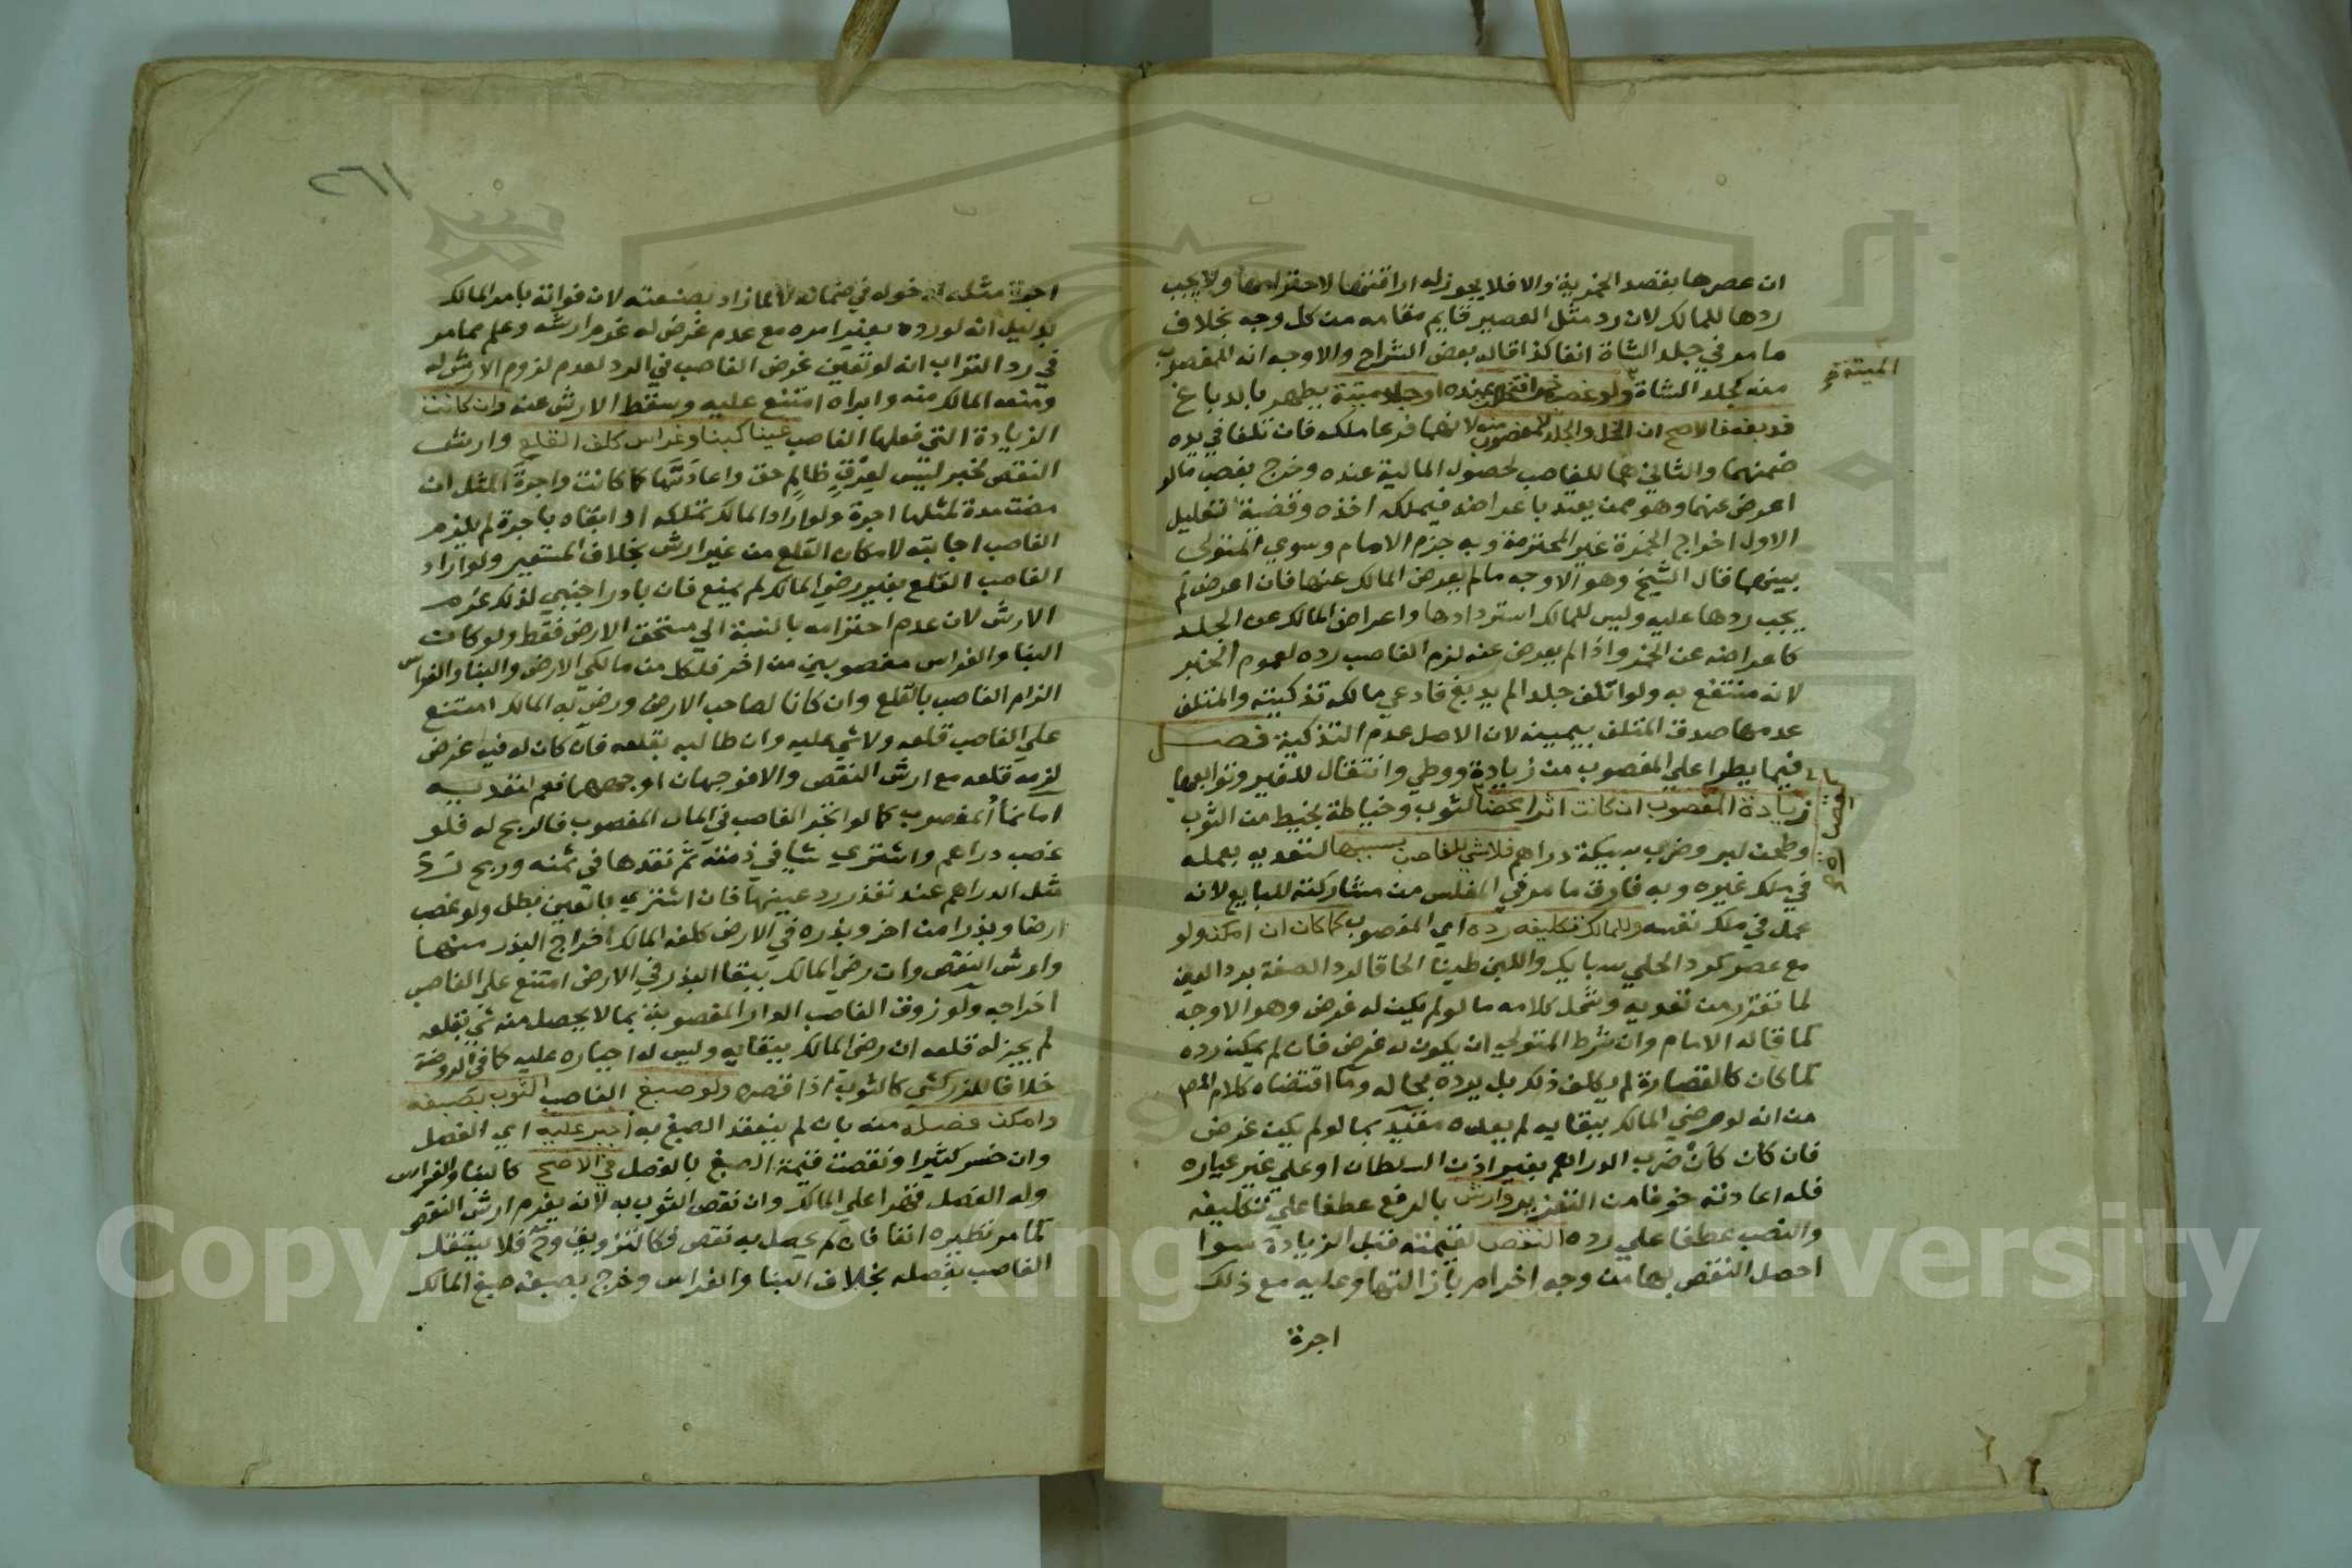 ان عصرها بقصد الخمرية والا فلا يجوز له اراقتها لاحترامها ولا يجب
ردها للمالك لان رد مثل العصير قايم مقامه من كل وجه بخلاف
ما مر في جلد الشاة انفا كذا قاله بعض الشراح والاوجه انه المغصوب
منه كجلد الشاة ولو غصب خمرا فتخللت عنده او جلد ميتة يطهر بالدباغ
الميتة
فدبغه فالاصح ان الخل والجلد للمغصوب منه لانهما فرعا ملكه فان تلفا في يده
ضمنهما والثاني هما للغاصب لحصول المالية عنده وخرج بغصب ما لو
اعرض عنهما وهو ممن يعتد باعراضه فيملكه اخذه وقضية تعليل
الاول اخراج الخمرة غير المحترمة وبه جزم الامام وسوي المتولي
بينهما قال الشيخ وهو الاوجه ما لم يعرض المالك عنها فان اعرض لم
يجب ردها عليه وليس للمالك استردادها واعراض المالك عن الجلد
كاعراضه عن الخمر واذا لم يعرض عنه لزم الغاصب رده لعموم الخبر
لانه منتفع به ولو اتلف جلدا لم يدبغ فادعي مالكه تذكيته والمتلف
عدمها صدق المتلف بيمينه لان الاصل عدم التذكية فصل
فيما يطرا علي المغصوب من زيادة ووطي وانتقال للغير وتوابعها
زيادة المغصوب ان كانت اثرا محضا لثوب وخياطة بخيط من الثوب
وطحن لبر وضرب سبيكة دراهم فلا شي للغاصب بسببها لتعديه بعمله
في ملك غيره وبه فارق ما مر في المفلس من مشاركته للبايع لانه
عمل في ملك نفسه وللمالك تكليفه رده اي المغصوب كما كان ان امكن ولو
مع عسر كرد الحلي سبايك واللبن طينا الحاقا لرد الصفة برد العين
لما تقرر من تعديه وشمل كلامه ما لو لم يكن له غرض وهو الاوجه
كما قاله الامام وان شرط المتولي ان يكون له غرض فان لم يمكن رده
كما كان كالقصارة لم يكلف ذلك بل يرده بحاله وما اقتضاه كلام المص
من انه لو رضي المالك ببقايه لم يعده مقيد بما لو لم يكن غرض
فان كان كأن ضرب الدراهم بغير اذن السلطان او علي غير عياره
فله اعادته خوفا من التغزير وارش بالرفع عطفا علي تكليفه
والنصب عطفا علي رده النقص لقيمته قبل الزيادة سوا
احصل النقص بها من وجه اخر ام بازالتها وعليه مع ذلك
اجرة
٢٦١
اجرة مثله لدخوله في ضمانه لا لما زاد بصنعته لان فواته بامر المالك
بدليل انه لو رده بغير امره مع عدم غرض له غرم ارشه وعلم مما مر
في رد التراب انه لو تعين غرض الغاصب في الرد لعدم لزوم الارش له
ومنعه المالك منه وابراه امتنع عليه وسقط الارش عنه وان كانت
الزيادة التي فعلها الغاصب عينا كبنا وغراس كلف القلع وارش
النقص لخبر ليس لعرق ظالم حق واعادتها كما كانت واجرة المثل ان
مضت مدة لمثلها اجرة ولو اراد المالك تملكه او ابقاه باجرة لم يلزم
الغاصب اجابته لامكان القلع من غير ارش بخلاف المستعير ولو اراد
الغاصب القلع بغير رضي المالك لم يمنع فان بادر اجنبي لذلك غرم
الارش لان عدم احترامه بالنسبة الي مستحق الارض فقط ولو كان
البنا والغراس مغصوبين من اخر فلكل من مالكي الارض والبنا والغراس
الزام الغاصب بالقلع وان كانا لصاحب الارض ورضي به المالك امتنع
علي الغاصب قلعه ولا شي عليه وان طالبه بقلعه فان كان له فيه غرض
لزمه قلعه مع ارش النقص والا فوجهان اوجههما نعم لتعديه
اما نما المغصوب كما لو اتجر الغاصب في المال المغصوب فالربح له فلو
غصب دراهم واشتري شيا في ذمته ثم نقدها في ثمنه وربح رد
مثل الدراهم عند تعذر رد عينها فان اشتري بالعين بطل ولو غصب
ارضا وبذرا من اخر وبذره في الارض كلفه المالك اخراج البذر منها
وارش النقص وان رضي المالك ببقا البذر في الارض امتنع علي الغاصب
اخراجه ولو زوق الغاصب الدار المغصوبة بما لا يحصل منه شي بقلعه
لم يجز له قلعه ان رضي المالك ببقايه وليس له اجباره عليه كما في الروضة
خلافا للزركشي كالثوب اذا قصره ولو صبغ الغاصب الثوب بصبغه
وامكن فصله منه بان لم ينعقد الصبغ به اجبر عليه اي الفصل
وان خسر كثيرا ونقصت قيمة الصبغ بالفصل في الاصح كالبنا والغراس
وله الفصل قهرا علي المالك وان نقص الثوب به لانه يغرم ارش النقص
كما مر نظيره انفا فان لم يحصل به نقص فكالتزويق وح فلا يستقل
الغاصب بفصله بخلاف البنا والغراس وخرج بصبغه صبغ المالك
Copyright © King Saud University